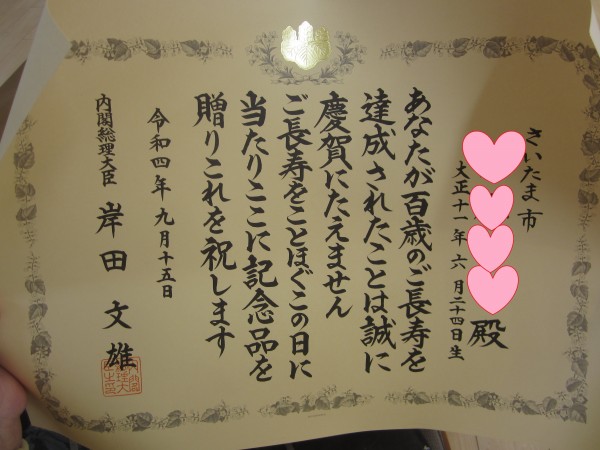 さいたま市
殿
大正十一年六月二十四日生
あなたが百歳のご長寿を
達成されたことは誠に
慶賀にたえません
ご長寿をことほぐこの日に
当たりここに記念品を
贈りこれを祝します
令和四年九月十五日
内閣総理大臣 岸田文雄